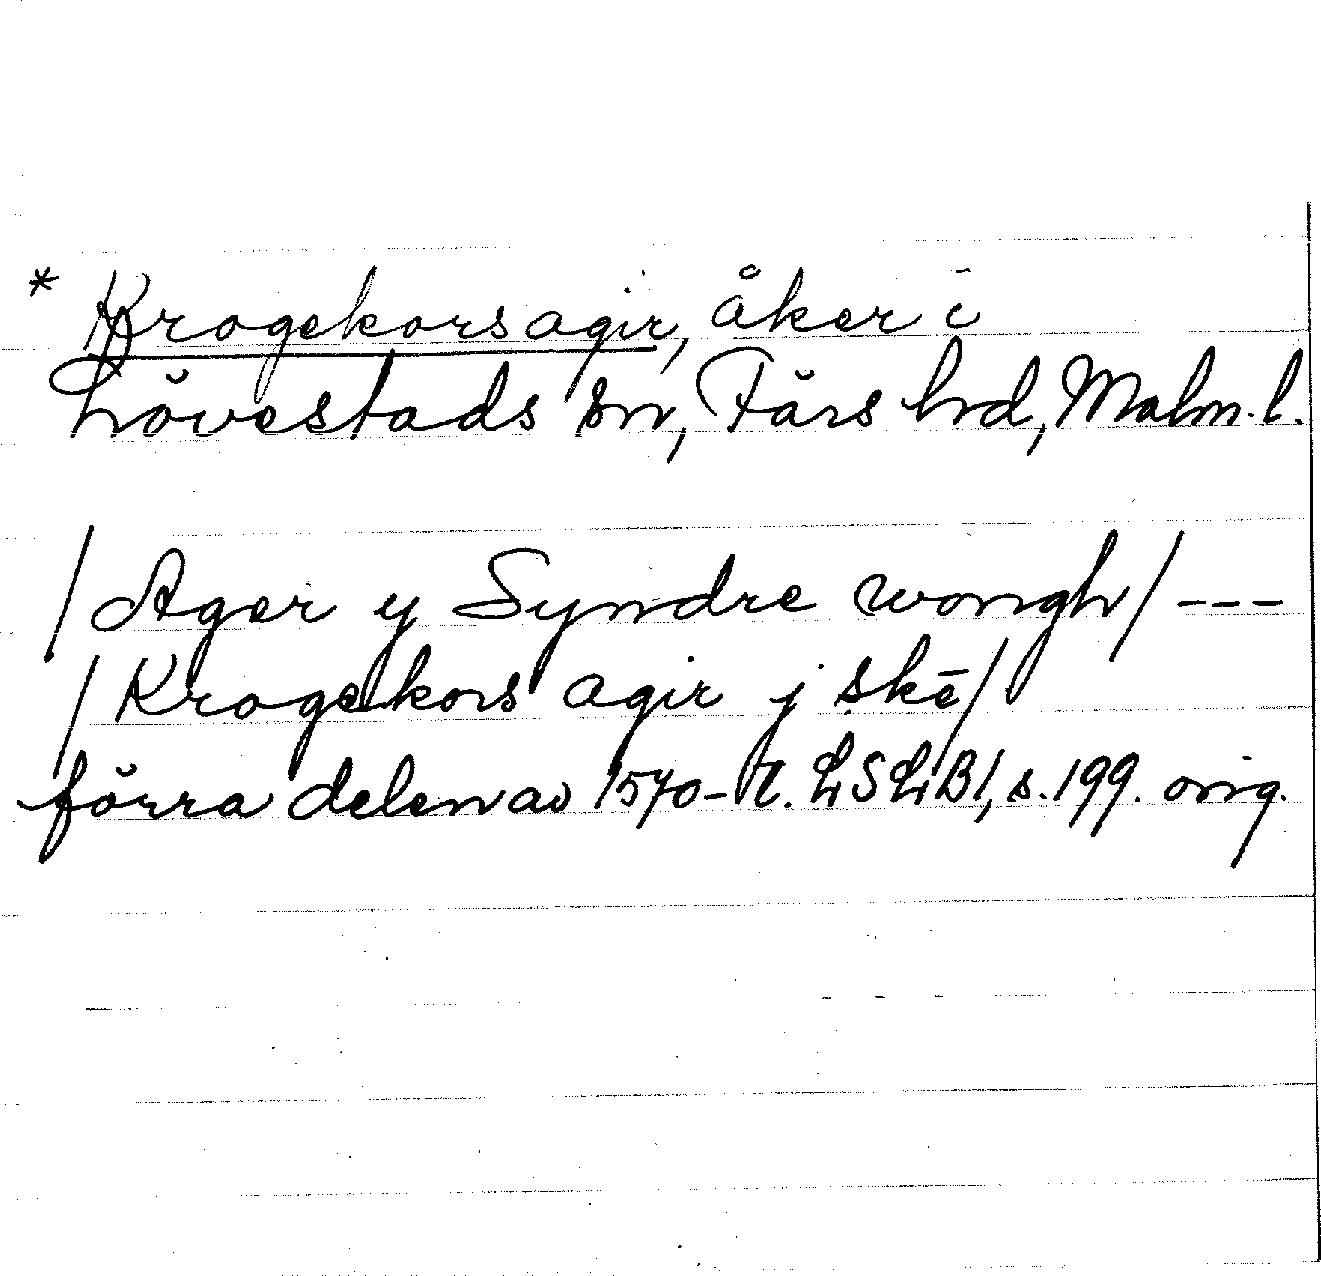 * Krogekorsagir, åker i
Lövestads sn, Färs hd, Malm. l.
/Ager y Syndre wongh/ ---
/Krogekors agir j skē/
förra delen av 1570-t. LSLB1, s. 199. orig.